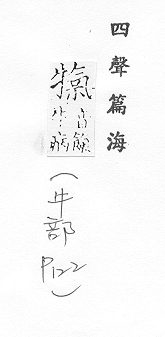 四聲篇海
音
牛病
(牛部
P122)